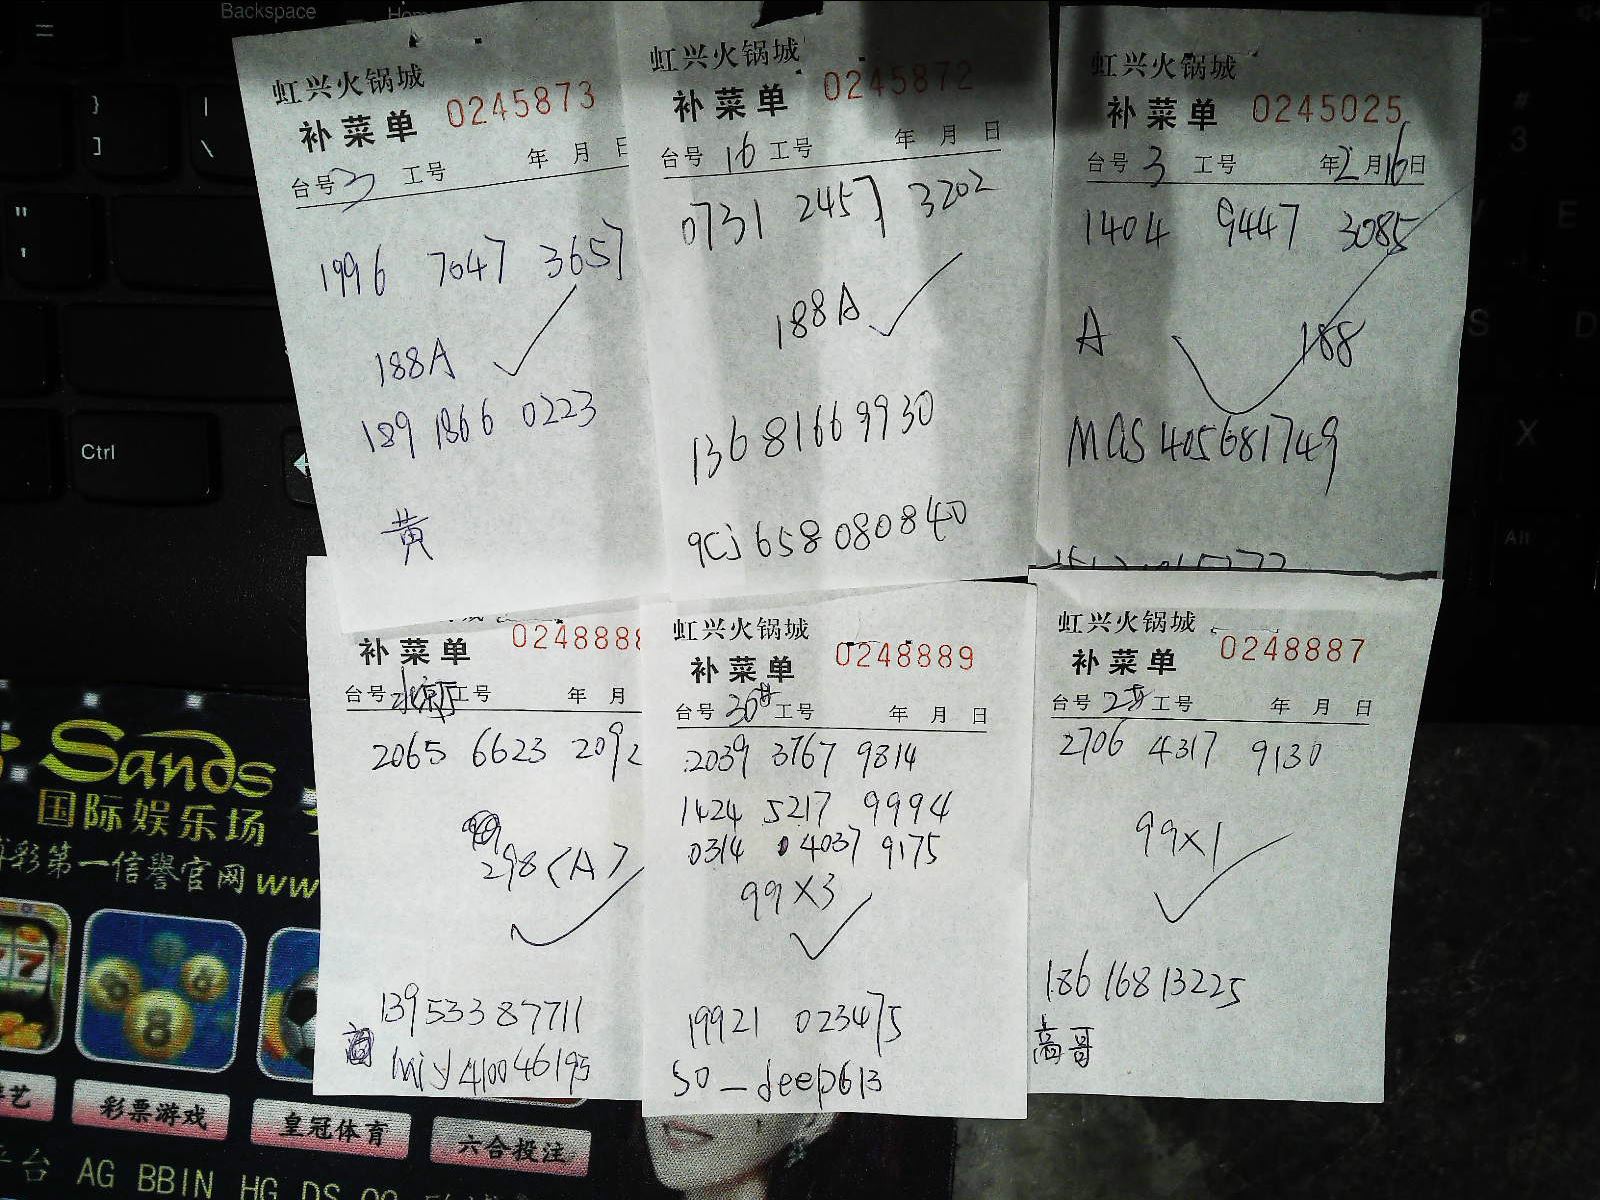 Backspace
Home
虹兴火锅城
补菜单 0245873
台号 3 工号 年 月 日
1996 7047 3657
188A
189 1866 0223
黄
虹兴火锅城
补菜单 0245872
台号 16 工号 年 月 日
0731 2457 3202
188A
13681669930
qcj658080840
虹兴火锅城
补菜单 0245025
台号 3 工号 年 2 月 16 日
1404 9447 3085
A 188
MAS405681749
补菜单 0248888
台号 工号 年 月
2065 6623 2092
298(A)
13953387711
imiy410046195
虹兴火锅城
补菜单 0248889
台号 30 工号 年 月 日
2039 3767 9814
1424 5217 9994
0314 4037 9175
99×3
19921 023475
so_deep613
虹兴火锅城
补菜单 0248887
台号 工号 年 月 日
2706 4317 9130
99×1
186 168 13225
高哥
Ctrl
Alt
Sands
国际娱乐场
彩第一信誉官网 ww
彩票游戏
皇冠体育
六合投注
平台 AG BBIN HG DS